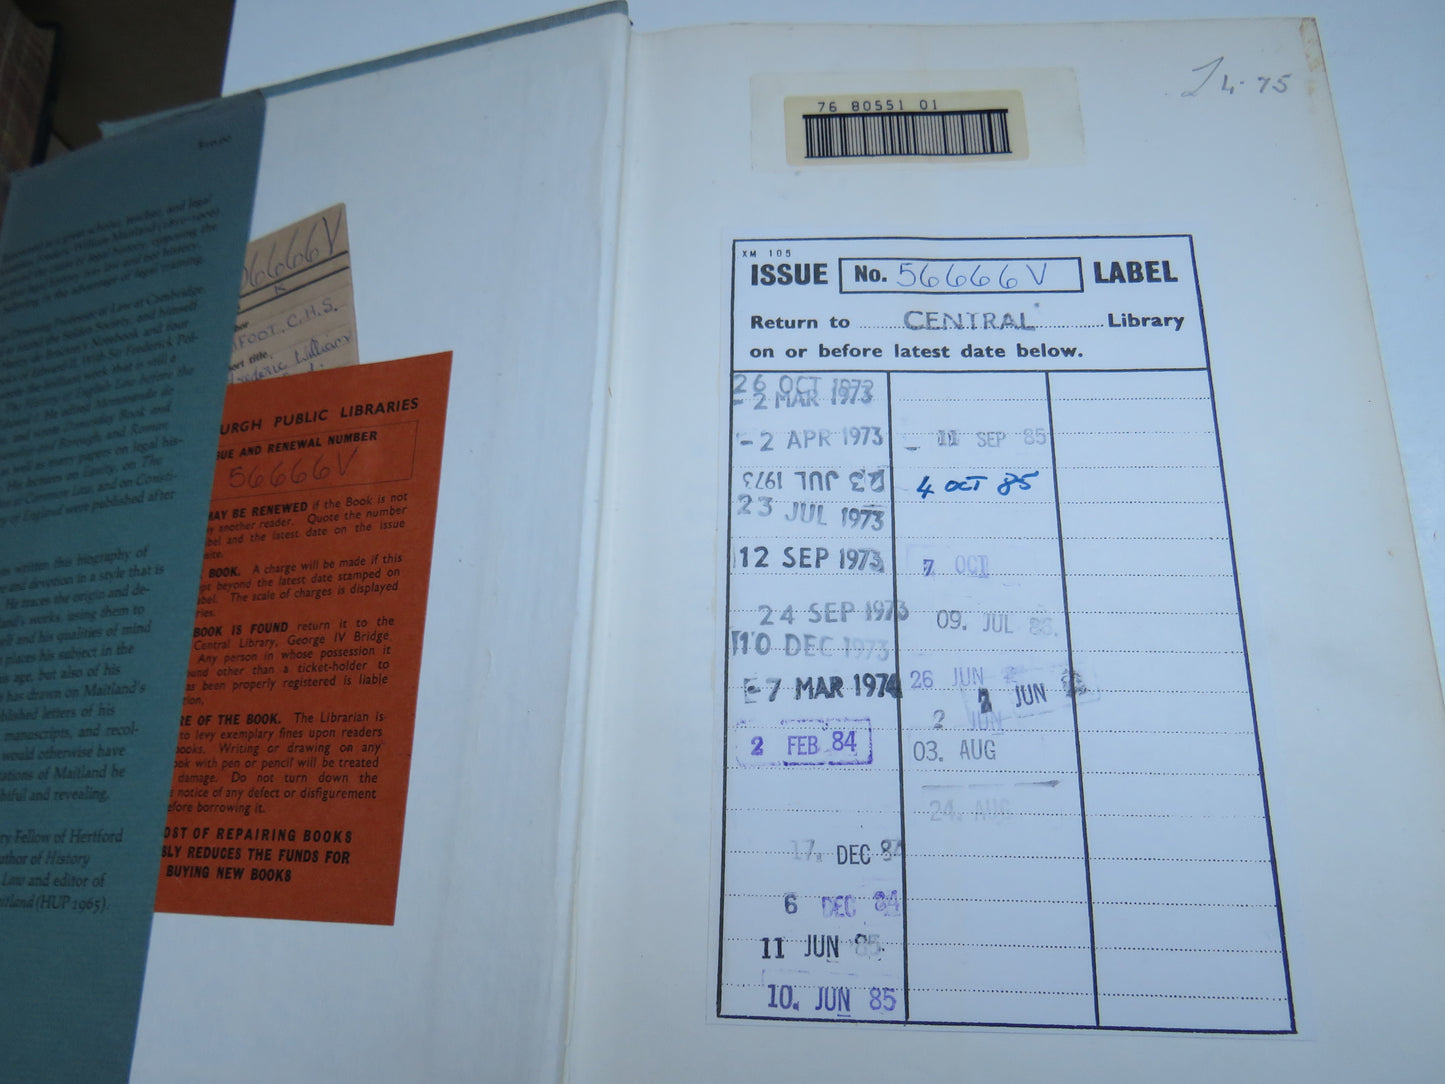 $10.00
great scholar, teacher, and legal
William Maitland (1850-1906)
legal history, opposing the
law and not history,
in the advantage of legal training.
Downing Professor of Law at Cambridge
the Selden Society, and himself
Bracton's Notebook and four
of Edward II. With Sir Frederick Pol-
the brilliant work that is still a
The History of English Law before the
He edited Memoranda de
and wrote Domesday Book and
and Borough, and Roman
as well as many papers on legal his-
His lectures on Equity, on The
at Common Law, and on Consti-
of England were published after
written this biography of
and devotion in a style that is
He traces the origin and de-
land's works, using them to
self and his qualities of mind
places his subject in the
his age, but also of his
has drawn on Maitland's
published letters of his
manuscripts, and recol-
would otherwise have
Maitland he
and revealing,
Fellow of Hertford
author of History
Law and editor of
Maitland (HUP 1965).
6666V
K
FOOT, C.H.S.
ort title
Frederic William
URGH PUBLIC LIBRARIES
UE AND RENEWAL NUMBER
56666V
MAY BE RENEWED if the Book is not
y another reader. Quote the number
bel and the latest date on the issue
site.
BOOK. A charge will be made if this
pt beyond the latest date stamped on
abel. The scale of charges is displayed
ries.
BOOK IS FOUND return it to the
Central Library, George IV Bridge.
Any person in whose possession it
und other than a ticket-holder to
as been properly registered is liable
tion,
RE OF THE BOOK. The Librarian is
to levy exemplary fines upon readers
books. Writing or drawing on any
ook with pen or pencil will be treated
damage. Do not turn down the
notice of any defect or disfigurement
efore borrowing it.
OST OF REPAIRING BOOKS
SLY REDUCES THE FUNDS FOR
BUYING NEW BOOKS
4.75
76 80551 01
XM 105
ISSUE No. 56666V LABEL
Return to CENTRAL Library
on or before latest date below.
26 OCT 1973
- 2 MAR 1973
- 2 APR 1973
23 JUL 1973
23 JUL 1973
12 SEP 1973
24 SEP 1973
10 DEC 1973
- 7 MAR 1974
2 FEB 84
17. DEC 84
6 DEC 84
11 JUN 85
10. JUN 85
11 SEP 85
4 OCT 85
7 OCT
09. JUL 86.
26 JUN
2 JUN
2 JUN
03. AUG
24. AUG